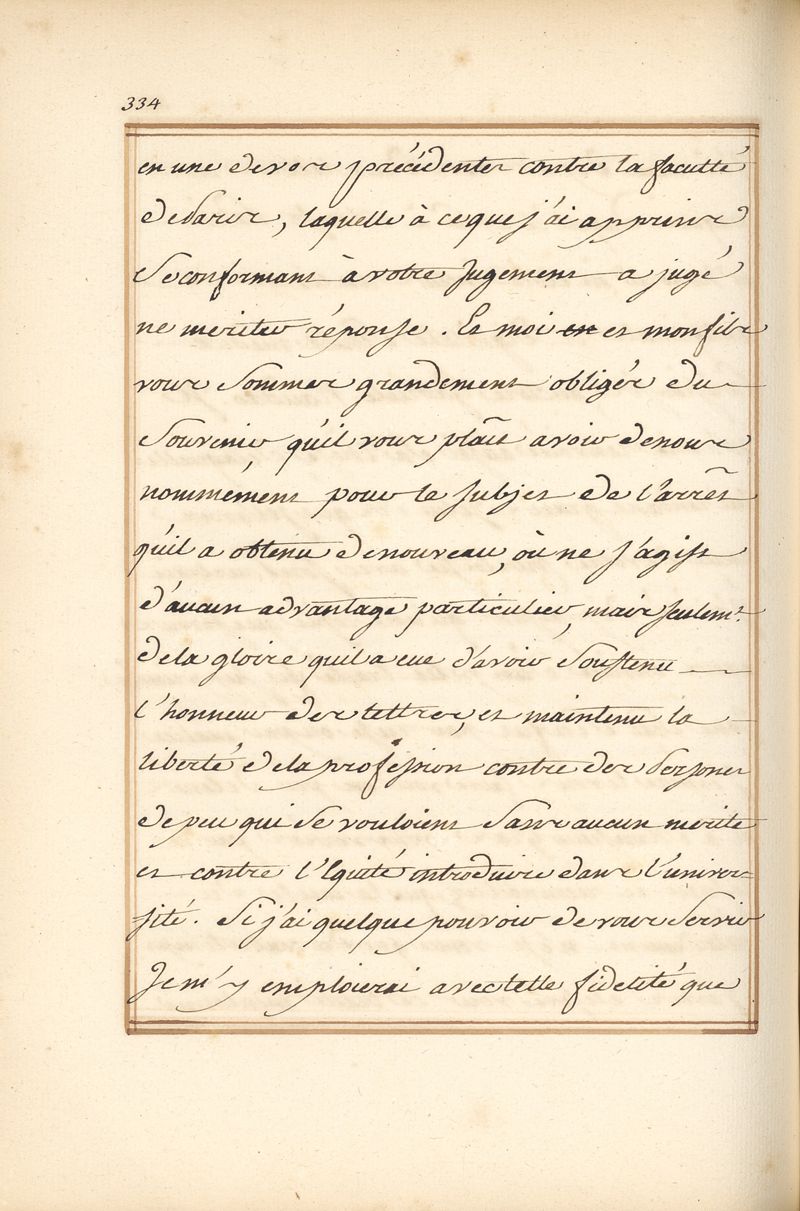 334
en une de vos précédentes contre la faculté
de Paris, laquelle à ce que j'ai appris
Se conformant à votre Jugement a jugé
ne meriter réponse. Et moi et mon fils
vous Sommes grandement obligés du
Souvenir qu'il vous plaît avoir de nous
nommément pour le Subjet de l'arrêt
qu'il a obtenu de nouveau, où ne s'agist
d'aucun advantage particulier, mais seulemt.
de la gloire qu'il a eue d'avoir Soustenu
l'honneur des lettres, et maintenu la
liberté de la profession contre des Persones
de peu qui Se vouloient Sans aucun merite
et contre l'Equité introduire dans l'univer-
sité. Si j'ai quelque pouvoir de vous Servir
Je m'y emploierai avec telle fidelité que